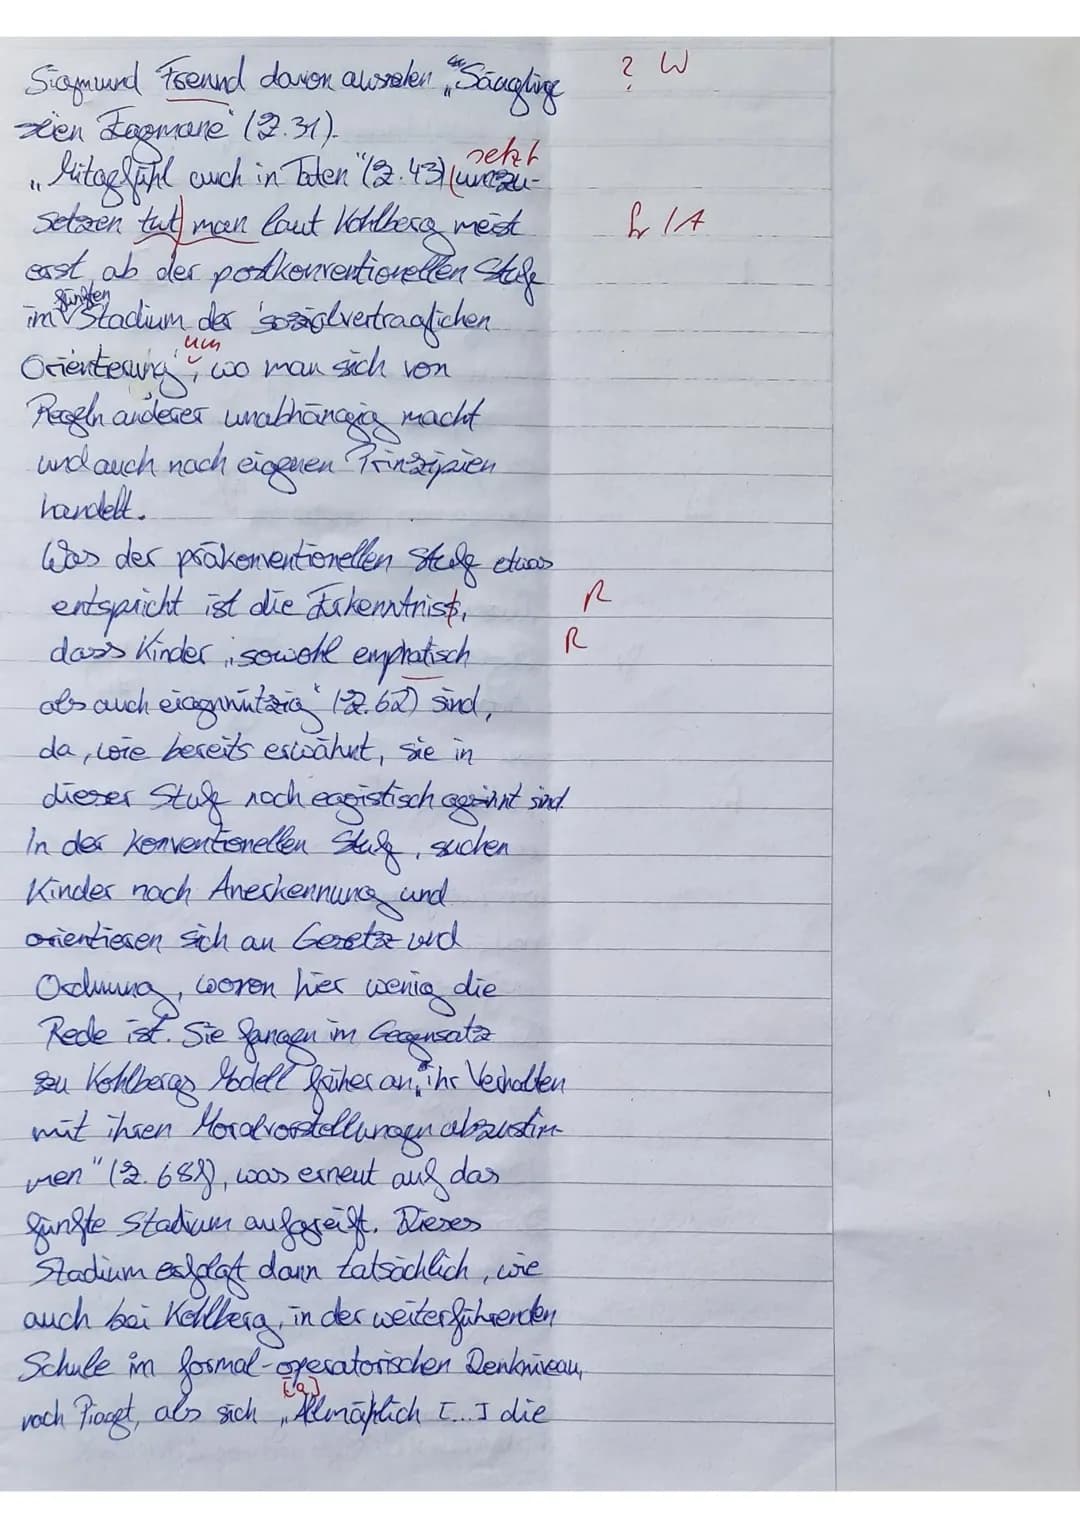 Sigmund Freund davon ausreden „Säuglinge ? W
seien Egomane" (Z.31).
setzt
„Mitgefühl auch in Taten" (Z.43) (umzu-
setzen tut) man laut Kohlberg meist Gr/A
erst ab der postkonventionellen Stufe
fünften
im Stadium der 'sozialvertraglichen
um
Orientierung', wo man sich von
Regeln anderer unabhängig macht
und auch nach eigenen Prinzipien
handelt.
Was der präkonventionellen Stufe etwas
entspricht ist die Erkenntniss, R
dass Kinder „sowohl emphatisch R
als auch eigennützig" (Z.62) sind,
da, wie bereits erwähnt, sie in
dieser Stufe noch egoistisch gesinnt sind.
In der konventionellen Stufe, suchen
Kinder nach Anerkennung und
orientieren sich an Gesetz und
Ordnung, wovon hier wenig die
Rede ist. Sie fangen im Gegensatz
zu Kohlbergs Modell früher an, „ihr Verhalten
mit ihren Moralvorstellungen abzustim-
men" (Z.68f), was erneut auf das
fünfte Stadium aufgreift. Dieses
Stadium erfolgt dann tatsächlich, wie
auch bei Kohlberg, in der weiterführenden
Schule im formal-operatorischen Denkniveau,
[a]
nach Piaget, als sich „Allmählich [...] die